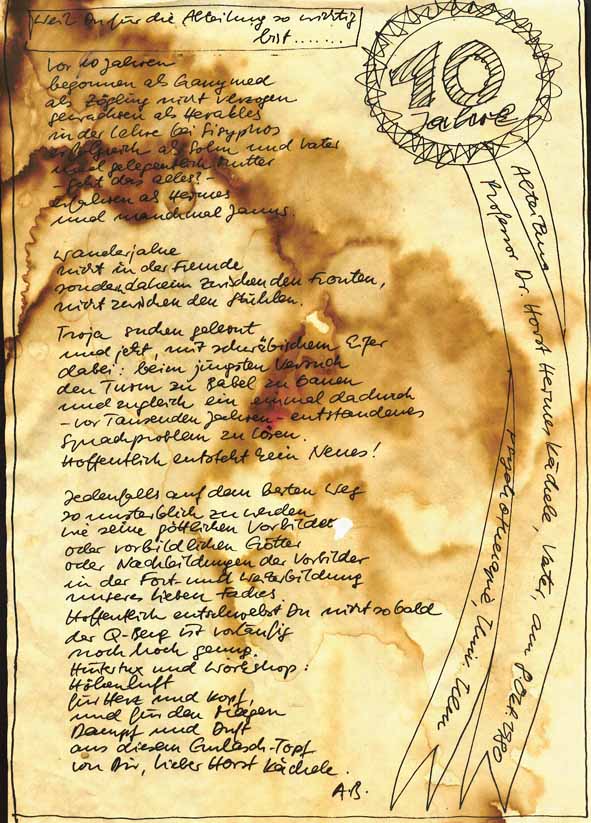 weil Du für die Abteilung so wichtig
bist......
10
Jahre
Vor 10 Jahren
begonnen als Ganymed
als Zögling nicht verzogen
gewachsen als Herakles
in der Lehre bei Sisyphos
erfolgreich als Sohn und Vater
und gelegentlich Mutter
- geht das alles? -
erfahren als Hermes
und manchmal Janus.
Wanderjahre
nicht in der Fremde
sondern daheim zwischen den Fronten,
nicht zwischen den Stühlen.
Troja suchen gelernt
und jetzt, mit schwäbischem Eifer
dabei: beim jüngsten Versuch
den Turm zu Babel zu bauen
und zugleich ein einmal dadurch
- vor Tausenden Jahren - entstandenes
Sprachproblem zu lösen.
Hoffentlich entsteht kein Neues!
Jedenfalls auf dem besten Weg
so unsterblich zu werden
wie seine göttlichen Vorbilder
oder vorbildlichen Götter
oder Nachbildungen der Vorbilder
in der Fort- und Weiterbildung
unseres lieben
Hoffentlich entschwebst Du nicht so bald
der Q-Berg ist vorläufig
noch hoch genug.
Hintertux und Workshop:
Höhenluft
für Herz und Kopf,
und für den Magen
Dampf und Duft
aus diesem Gulasch-Topf
von Dir, lieber Horst Kächele.
A.B.
Abteilung
Professor Dr. Horst Kächele, Vater, am 1980
Psychotherapie, Univ. Ulm